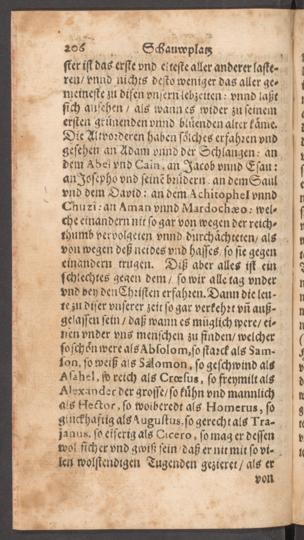 206 Schauwplatz
ster ist das erste vnd elteste aller anderer laste-
ren / vnnd nichts desto weniger das aller ge-
meineste zu disen vnsern lebzeiten: vnnd laßt
sich ansehen / als wann es wider zu seinem
ersten grünenden vnnd blüenden alter käme.
Die Altvorderen haben sölches erfahren vnd
gesehen an Adam vnnd der Schlangen: an
dem Abel vnd Cain, an Jacob vnnd Esau:
an Josepho vnd seinẽ brüdern. an dem Saul
vnd dem David: an dem Achitophel vnnd
Chuzi: an Aman vnnd Mardochæo: wel-
che einandern nit so gar von wegen der reich-
thumb vervolgeten vnnd durchächteten / als
von wegen deß neides vnd hasses, so sie gegen
einandern trugen. Diß aber alles ist ein
schlechtes gegen dem / so wir alle tag vnder
vnd bey den Christen erfahren. Dann die leu-
te zu diser vnserer zeit so gar verkehrt vñ auß-
gelassen sein / daß wann es müglich were / ei-
nen vnder vns menschen zu finden / welcher
so schön were als Absolom, so starck als Sam-
son, so weiß als Salomon, so geschwind als
Asahel, so reich als Crœsus, so freymilt als
Alexander der grosse / so kühn vnd mannlich
als Hector, so wolberedt als Homerus, so
glückhafftig als Augustus, so gerecht als Tra-
janus, so eiferig als Cicero, so mag er dessen
wol sicher vnd gwiß sein / daß er nit mit so vi-
len wolstendigen Tugenden gezieret / als er
von